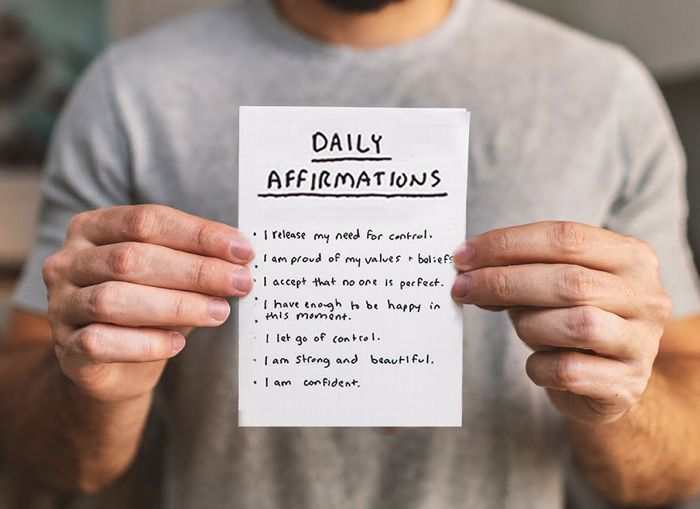 DAILY
AFFIRMATIONS
• I release my need for control.
• I am proud of my values + beliefs
• I accept that no one is perfect.
• I have enough to be happy in
• this moment.
• I let go of control.
• I am strong and beautiful.
• I am confident.